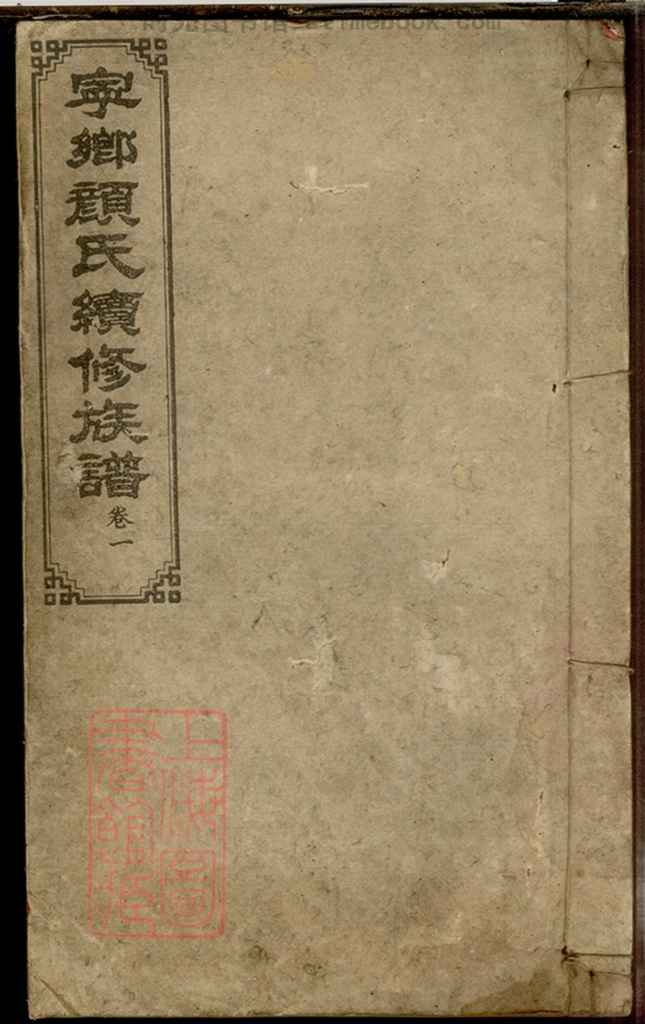 寧鄉顏氏續修族譜
卷一
上海圖
書館藏